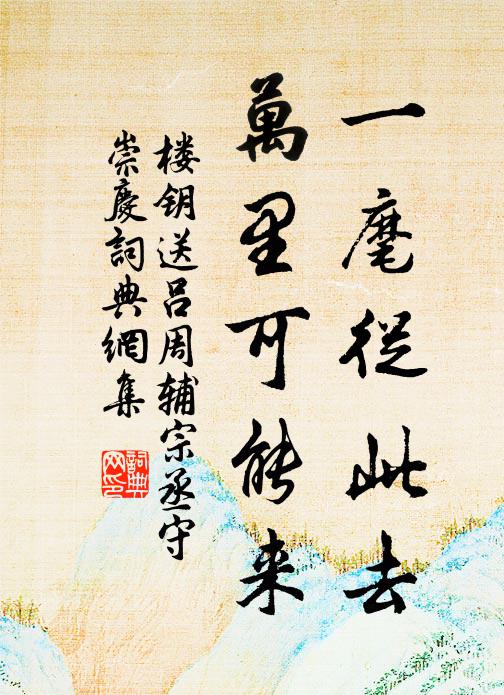 一麾從此去
萬里可能来
楼钥送吕周辅宗丞守
崇慶詞典網集
詞典网印